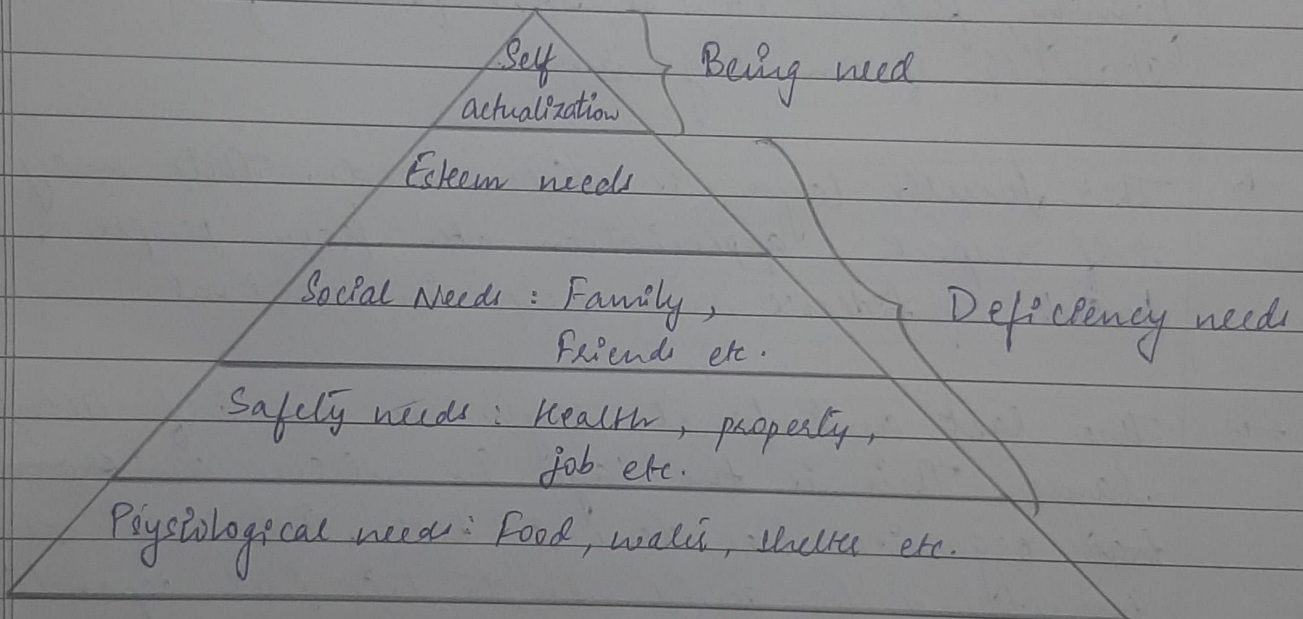 Self
actualization
Being need
Esteem needs
Social Needs : Family,
Friends etc.
Deficiency needs
Safety needs : Health, property,
job etc.
Physiological needs : Food, water, shelter etc.